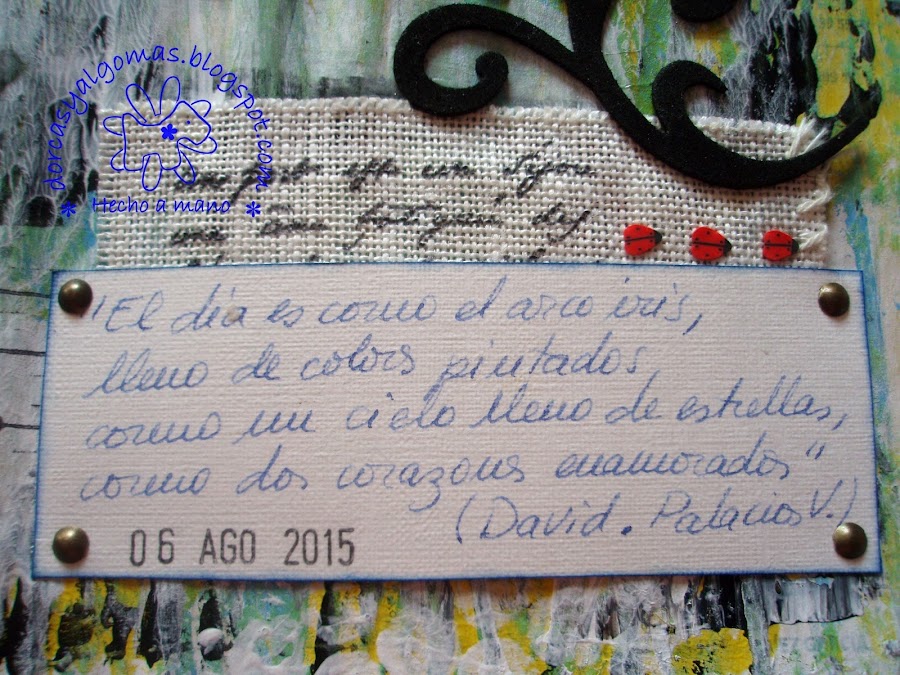 dorcasyalgomas.blogspot.com
Hecho a mano
"El día es como el arco iris,
lleno de colores pintados,
como un cielo lleno de estrellas,
como dos corazones enamorados"
(David. Palacios V.)
06 AGO 2015